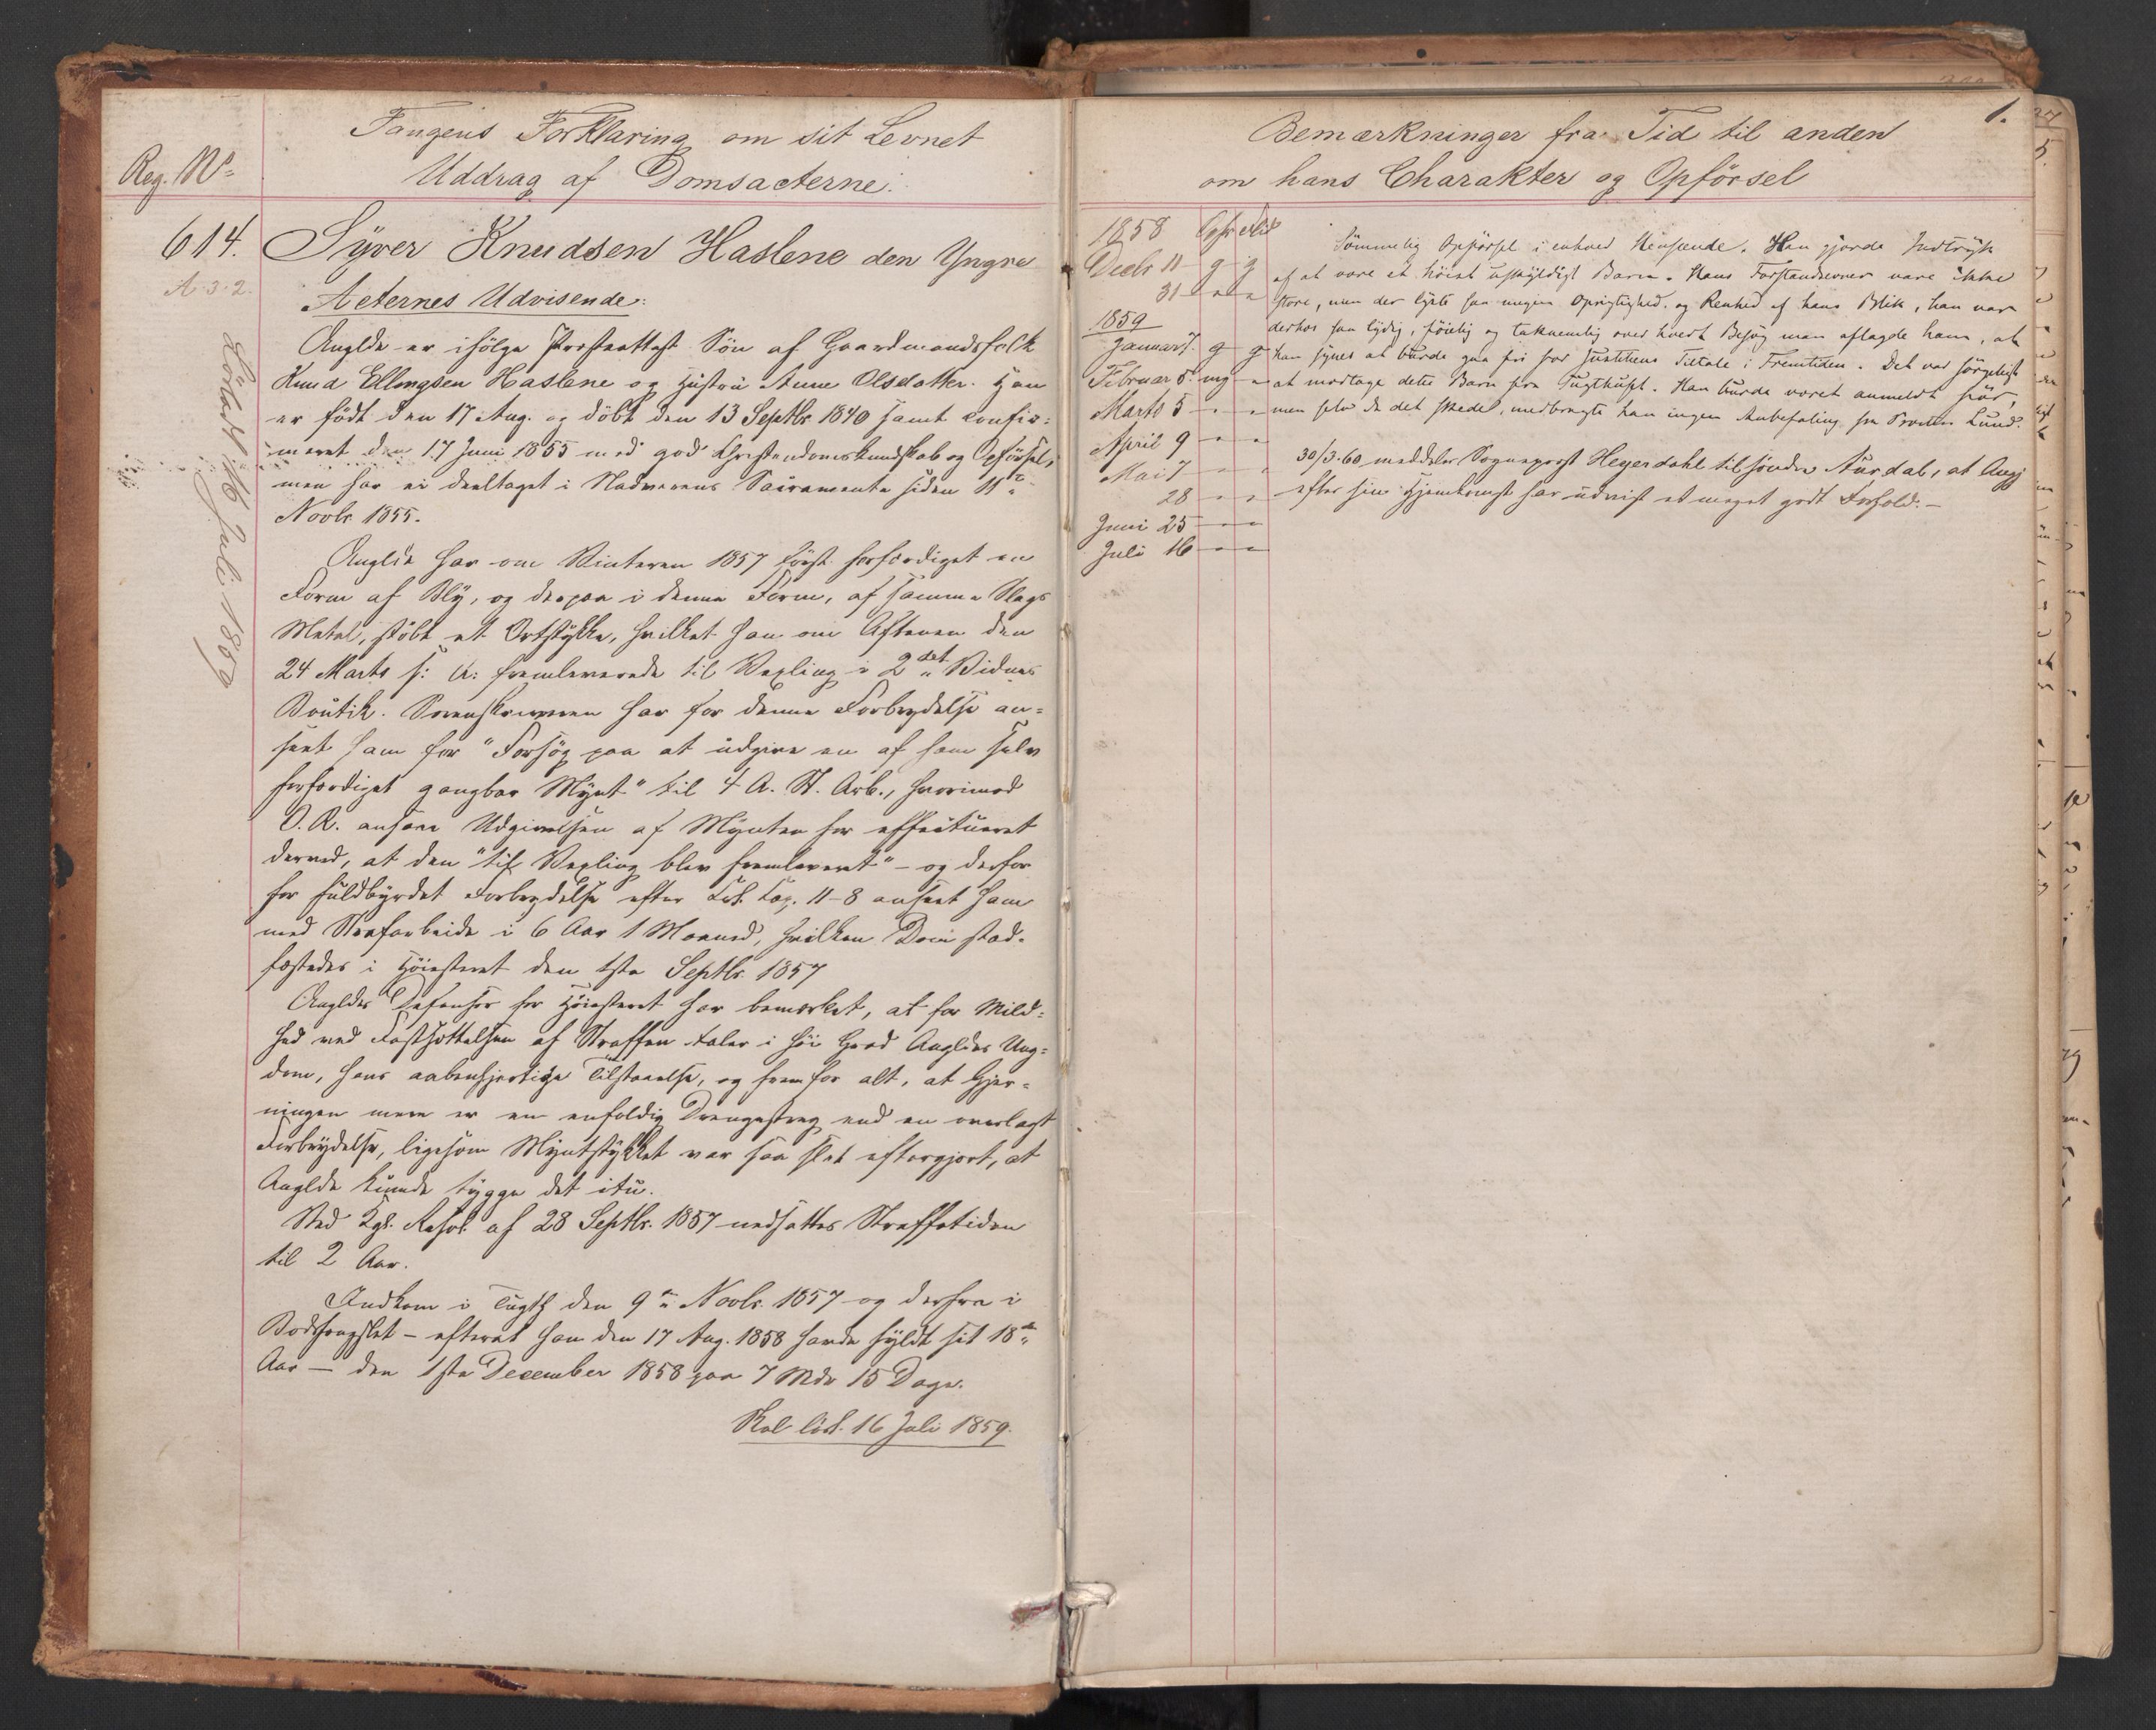 Fangens Forklaring om sit Levnet
Uddrag af Domsacterne.
Reg. No
614.
A. 3. 2.
Løsladt 16 Juli 1859
Syver Knudsen Haslene den Yngre
Acternes Udvisende:
Anglde er ifølge Præsteattest Søn af Gaardmandsfolk
Knud Ellingsen Haslene og Hustru Anne Olsdatter. Han
er født den 17 Aug. og døbt den 13 Septbr 1840 samt confir=
meret den 17 Juni 1855 med god Christendomskundskab og Opførsel,
men har ei deeltaget i Nadverens Sacramente siden 11te
Novbr 1855.
Anglde har om Vinteren 1857 først forfærdiget en
Form af Bly, og derpaa i denne Form, af samme Slags
Metal, støbt et Ortstykke, hvilket han om Aftenen den
24 Marts s: A: fremleverede til Vexling i 2det Vidnes
Boutik. Sorenskriveren har for denne Forbrydelse an=
seet ham for "Forsøg paa at udgive en af ham selv
forfærdiget gangbar Mynt" til 4 A. St. Arb., hvorimod
O. R. ansaae Udgivelsen af Mynten for effectueret
derved, at den "til Vexling blev fremleveret" – og derfor
for fuldbyrdet Forbrydelse efter Crl. Cap. 11-8 anseet ham
med Strafarbeide i 6 Aar 1 Maaned, hvilken Dom stad=
fæstedes i Høiesteret den 1ste Septbr. 1857
Angldes Defensor for Høiesteret har bemærket, at for Mild=
hed ved Fastsættelsen af Straffen taler i høi Grad Angldes Ung=
dom, hans aabenhjertige Tilstaaelse, og frem for alt, at Gjer=
ningen mere er en enfoldig Drengestreg end en overlagt
Forbrydelse, ligesom Myntstykket var saa slet eftergjort, at
Anglde kunde tygge det itu.
Ved Kgl. Resol. af 28 Septbr. 1857 nedsattes Straffetiden
til 2 Aar.
Indkom i Tugth den 9de Novbr. 1857 og derfra i
Bodsfængslet – efterat han den 17 Aug. 1858 havde fyldt sit 18de
Aar – den 1ste December 1858 paa 7 Mdr 15 Dage.
Skal løsl. 16 Juli 1859.
1.
Bemærkninger fra Tid til anden
om hans Charakter og Opførsel
1858 Opf Flid
Decbr 11 g g
31 " "
1859
Januar 7. g g
Februar 5 mg "
Marts 5 " "
April 9 " "
Mai 7 " "
28 " "
Juni 25 " "
Juli 16 " "
Sømmelig Opførsel i enhver Henseende. Han gjorde Indtryk
af at være et høist uskyldigt Barn. Hans Forstandsevner vare ikke
store, men der lyste saa megen Oprigtighed og Renhed af hans Blik, han var
derhos saa lydig, føielig og taknemlig over hvert Besøg man aflagde ham, at
han synes at burde gaa fri for Justitiens Tiltale i Fremtiden. Det var sørgeligt
at modtage dette Barn fra Tugthuset. Han burde været anmeldt før,
men selv da det skede, medbragte han ingen Anbefaling fra Præsten Lund.
30/3-60 meddeler Sogneprest Heyerdahl til søndre Aurdal, at Angj
efter sin Hjemkomst har udvist et meget godt Forhold. –